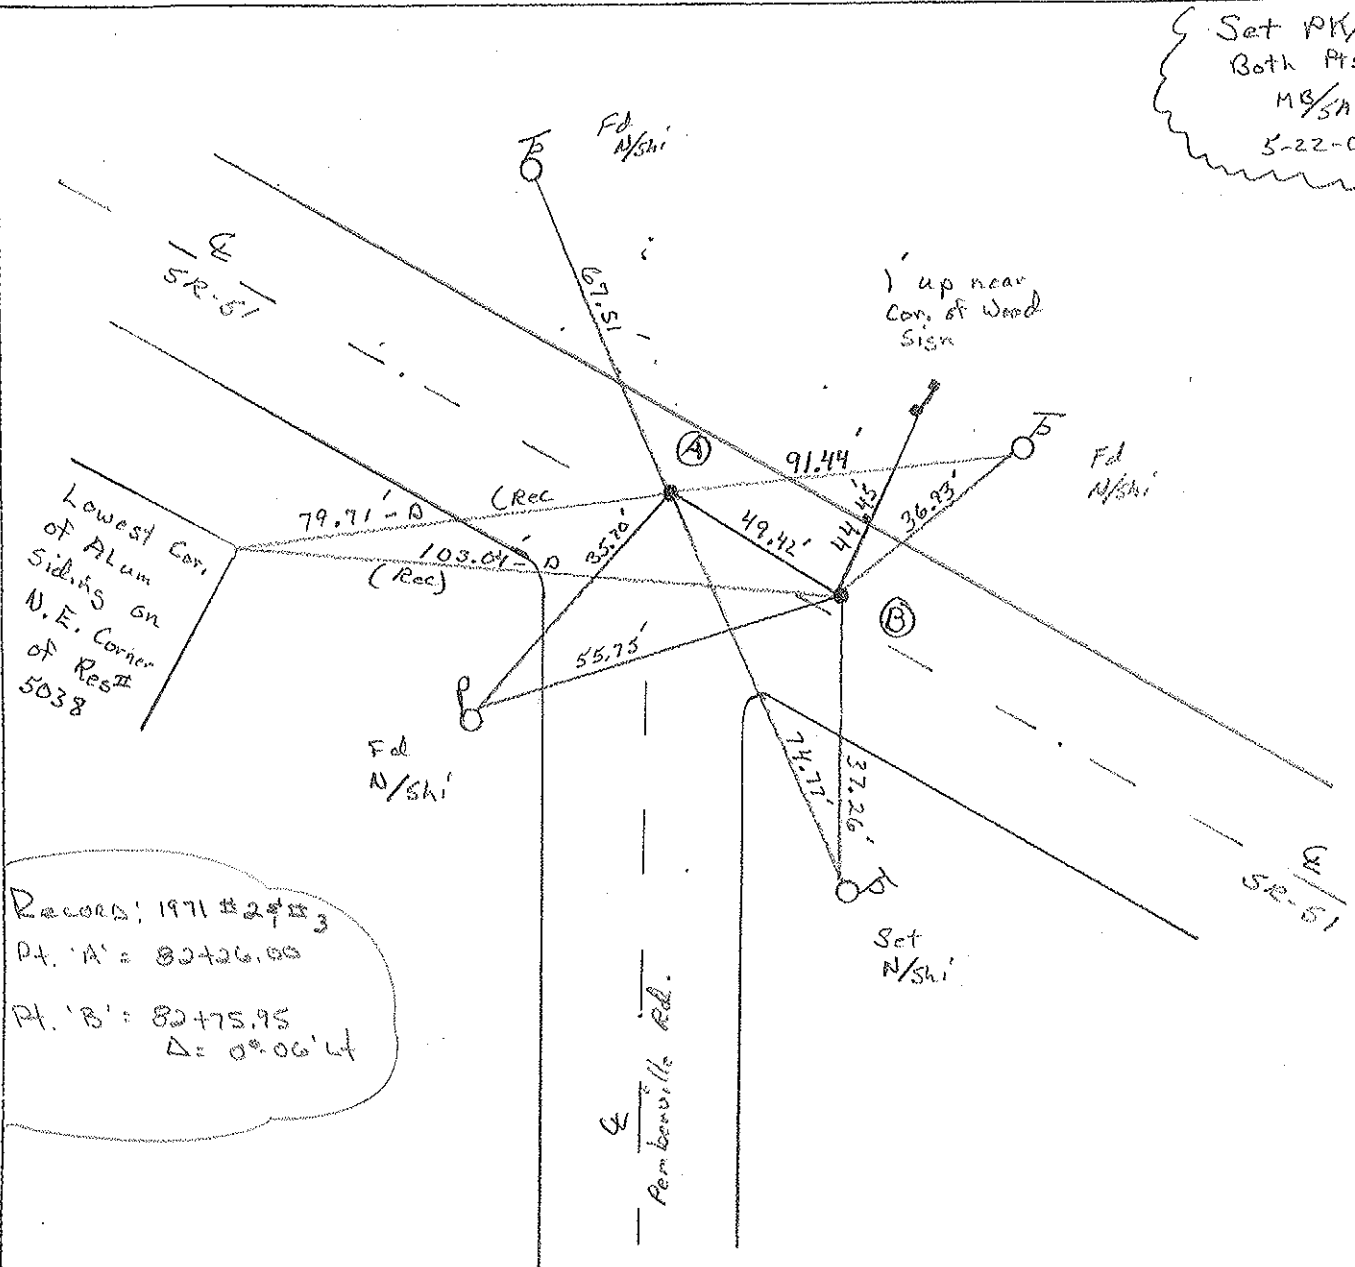 Set PK/
Both Pts
MB/SA
5-22-0
Fd
N/Shi
℄
SR-51
67.51
1' up near
Cor. of Wood
Sign
A
91.44'
Fd
N/Shi
(Rec
79.71'-D
35.70'
49.42'
44.45'
36.93'
103.04'-D
(Rec)
B
Lowest Cor.
of ALum
Siding on
N.E. Corner
of Res #
5038
55.75'
Fd
N/Shi
74.77'
37.26'
Set
N/Shi
℄
SR-51
Record: 1971 #2 & #3
Pt. 'A' = 82+26.00
Pt. 'B' = 82+75.95
Δ = 0°-06' Lt
℄
Pemberville Rd.